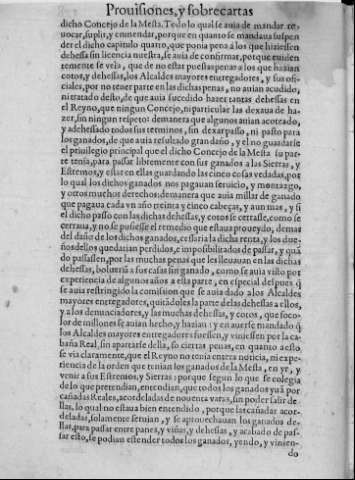 Prouisiones, y sobrecartas
dicho Concejo de la Mesta. Todo lo qual se auia de mandar re-
uocar, suplir, y enmendar, porque en quanto se mandaua suspen
der el dicho capitulo quatro, que ponia pena á los que hiziessen
dehessa sin licencia nuestra, se auia de confirmar, porque euiden
temente se veìa, que de no estar puestas penas a los que hazian
cotos, y dehessas, los Alcaldes mayores entregadores, y sus ofi-
ciales, por no tener parte en las dichas penas, no auian acudido,
ni tratado desto, de que auia sucedido hazer tantas dehessas en
el Reyno, que ningun Concejo, ni particular las dexaua de ha-
zer, sin ningun respeto: demanera que algunos auian acotado,
y adehessado todos sus terminos, sin dexar passo, ni pasto para
los ganados, de que auia resultado gran daño, y el no guardarse
el priuilegio principal que el dicho Concejo de la Mesta su par-
te tenia, para passar libremente con sus ganados a las Sierras, y
Estremos, y estar en ellas guardando las cinco cosas vedadas, por
lo qual los dichos ganados nos pagauan seruicio, y montazgo,
y otros muchos derechos: demanera que auia millar de ganado
que pagaua cada vn año treinta y cinco cabeças, y aun mas, y si
el dicho passo con las dichas dehessas, y cotos se cerrasse, como se
cerraua, y no se pusiesse el remedio que estaua proueydo, demas
del daño de los dichos ganados, cessaria la dicha renta, y los due-
ños dellos quedarian perdidos, e imposibilitados de passar, y quã
do passassen, por las muchas penas que les lleuauan en las dichas
dehessas, boluerìã a sus casas sin ganado, como se auia visto por
experiencia de algunos años a esta parte, en especial despues q̃
se auia restringido la comission que se auia dado a los Alcaldes
mayores entregadores, quitãdoles la parte de las dehessas a ellos,
y a los denunciadores, y las muchas dehessas, y cotos, que so co-
lor de millones se auian hecho, y hazian: y en auerse mandado q̃
los Alcaldes mayores entregadores fuessen, y viniessen por la ca-
baña Real, sin apartarse della, so ciertas penas, en quanto a esto,
se via claramente, que el Reyno no tenia entera noticia, ni expe-
riencia de la orden que tenian los ganados de la Mesta, en yr, y
venir a sus Estremos, y Sierras: porque segun lo que se colegia
de lo que pretendian, entendian, que todos los ganados yuã por
cañadas Reales, acordeladas de nouenta varas, sin poder salir de-
llas, lo qual no estaua bien entendido, porque las cañadas acor-
deladas, solamente seruian, y se aprouechauan los ganados de-
llas, para passar entre panes, y viñas, y dehessas, y acabado de pas-
sar esto, se podian estender todos los ganados, yendo, y vinien-
do